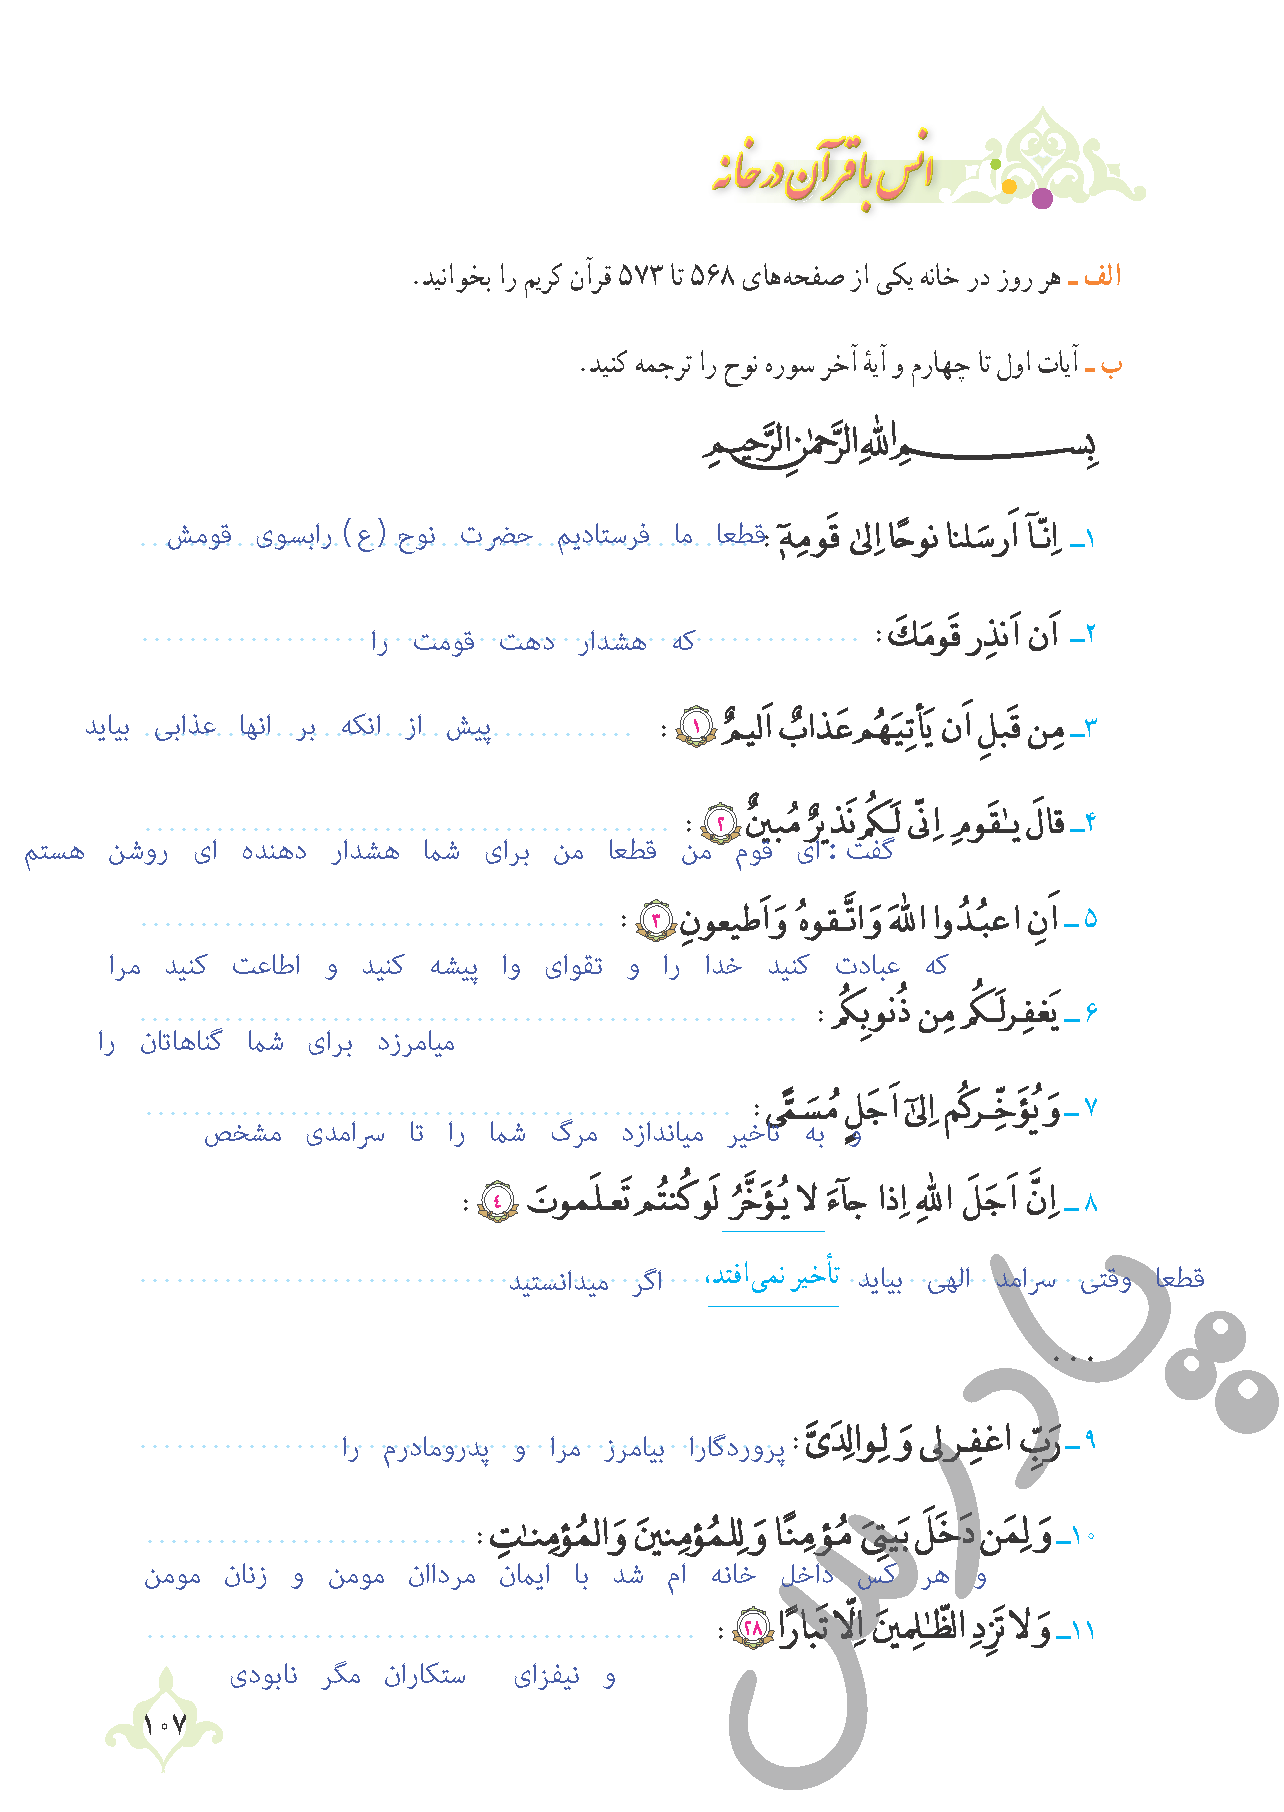 انس با قرآن در خانه
الف ـ هر روز در خانه یکی از صفحه‌های ۵۶۸ تا ۵۷۳ قرآن کریم را بخوانید.
ب ـ آیات اول تا چهارم و آیهٔ آخر سوره نوح را ترجمه کنید.
بِسـمِ اللهِ الرَّحمٰنِ الرَّحیـمِ
۱ـ اِنّـَآ اَرسَلنا نوحًا اِلیٰ قَومِهٖٓ : قطعا ما فرستادیم حضرت نوح (ع) رابسوی قومش
۲ـ اَن اَنذِر قَومَكَ : که هشدار دهت قومت را
۳ـ مِن قَبلِ اَن یَأتِیَهُم عَذابٌ اَلیمٌ ۱ : پیش از انکه بر انها عذابی بیاید
۴ـ قالَ یـٰقَومِ اِنّی لَکُم نَذیرٌ مُبینٌ ۲ :
گفت : ای قوم من قطعا من برای شما هشدار دهنده ای روشن هستم
۵ـ اَنِ اعبُدُوا اللّٰهَ وَ اتَّقوهُ وَ اَطیعونِ ۳ :
که عبادت کنید خدا را و تقوای او پیشه کنید و اطاعت کنید مرا
۶ـ یَغفِرلَکُم مِن ذُنوبِکُم :
میامرزد برای شما گناهاتان را
۷ـ وَ یُؤَخِّرکُم اِلیٰٓ اَجَلٍ مُسَمًّی :
و به تاخیر میاندازد مرگ شما را تا سرامدی مشخص
۸ـ اِنَّ اَجَلَ اللّٰهِ اِذا جآءَ لا یُؤَخَّرُ لَو کُنتُم تَعلَمونَ ٤ :
قطعا وقتی سرامد الهی بیاید تأخیر نمی‌افتد، اگر میدانستید
...
۹ـ رَبِّ اغفِرلی وَ لِوالِدَیَّ : پروردگارا بیامرز مرا و پدرومادرم را
۱۰ـ وَ لِمَن دَخَلَ بَیتِیَ مُؤمِنًا وَ لِلمُؤمِنینَ وَ المُؤمِنـٰتِ :
و هر کس داخل خانه ام شد با ایمان مرداان مومن و زنان مومن
۱۱ـ وَ لا تَزِدِ الظّـٰلِمینَ اِلّا تَبارًا ۲۸ :
و نیفزای ستکاران مگر نابودی
۱۰۷
پادرس